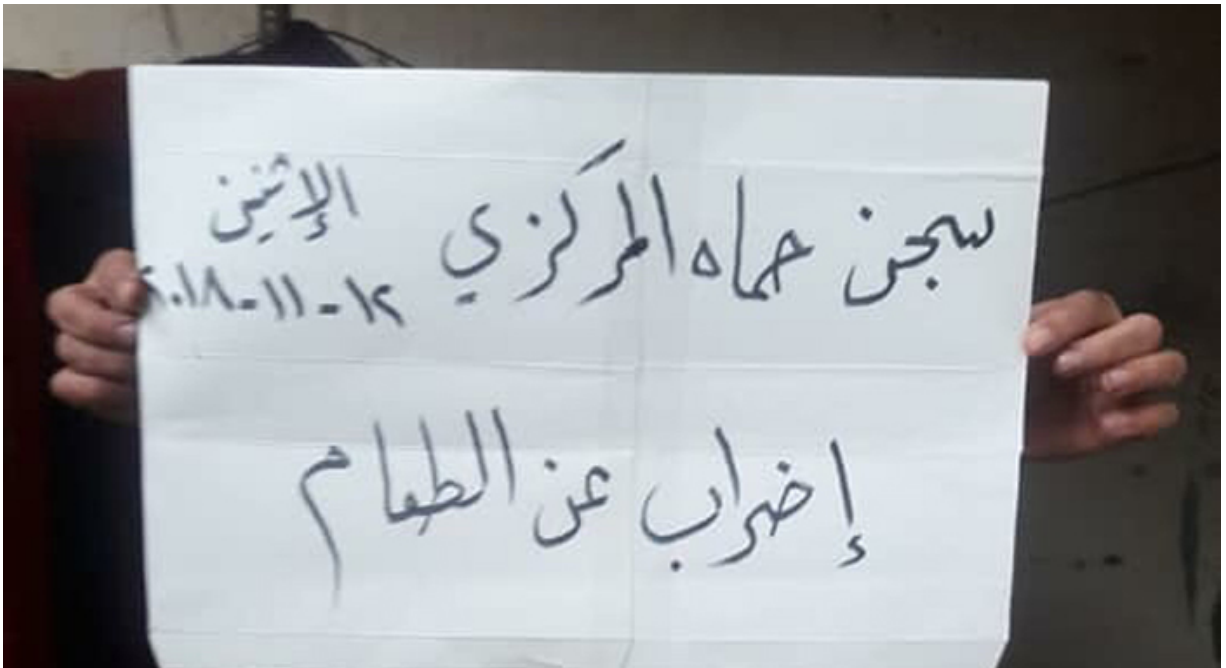 سجن حماه المركزي
الإثنين
١٢-١١-٢٠١٨
إضراب عن الطعام